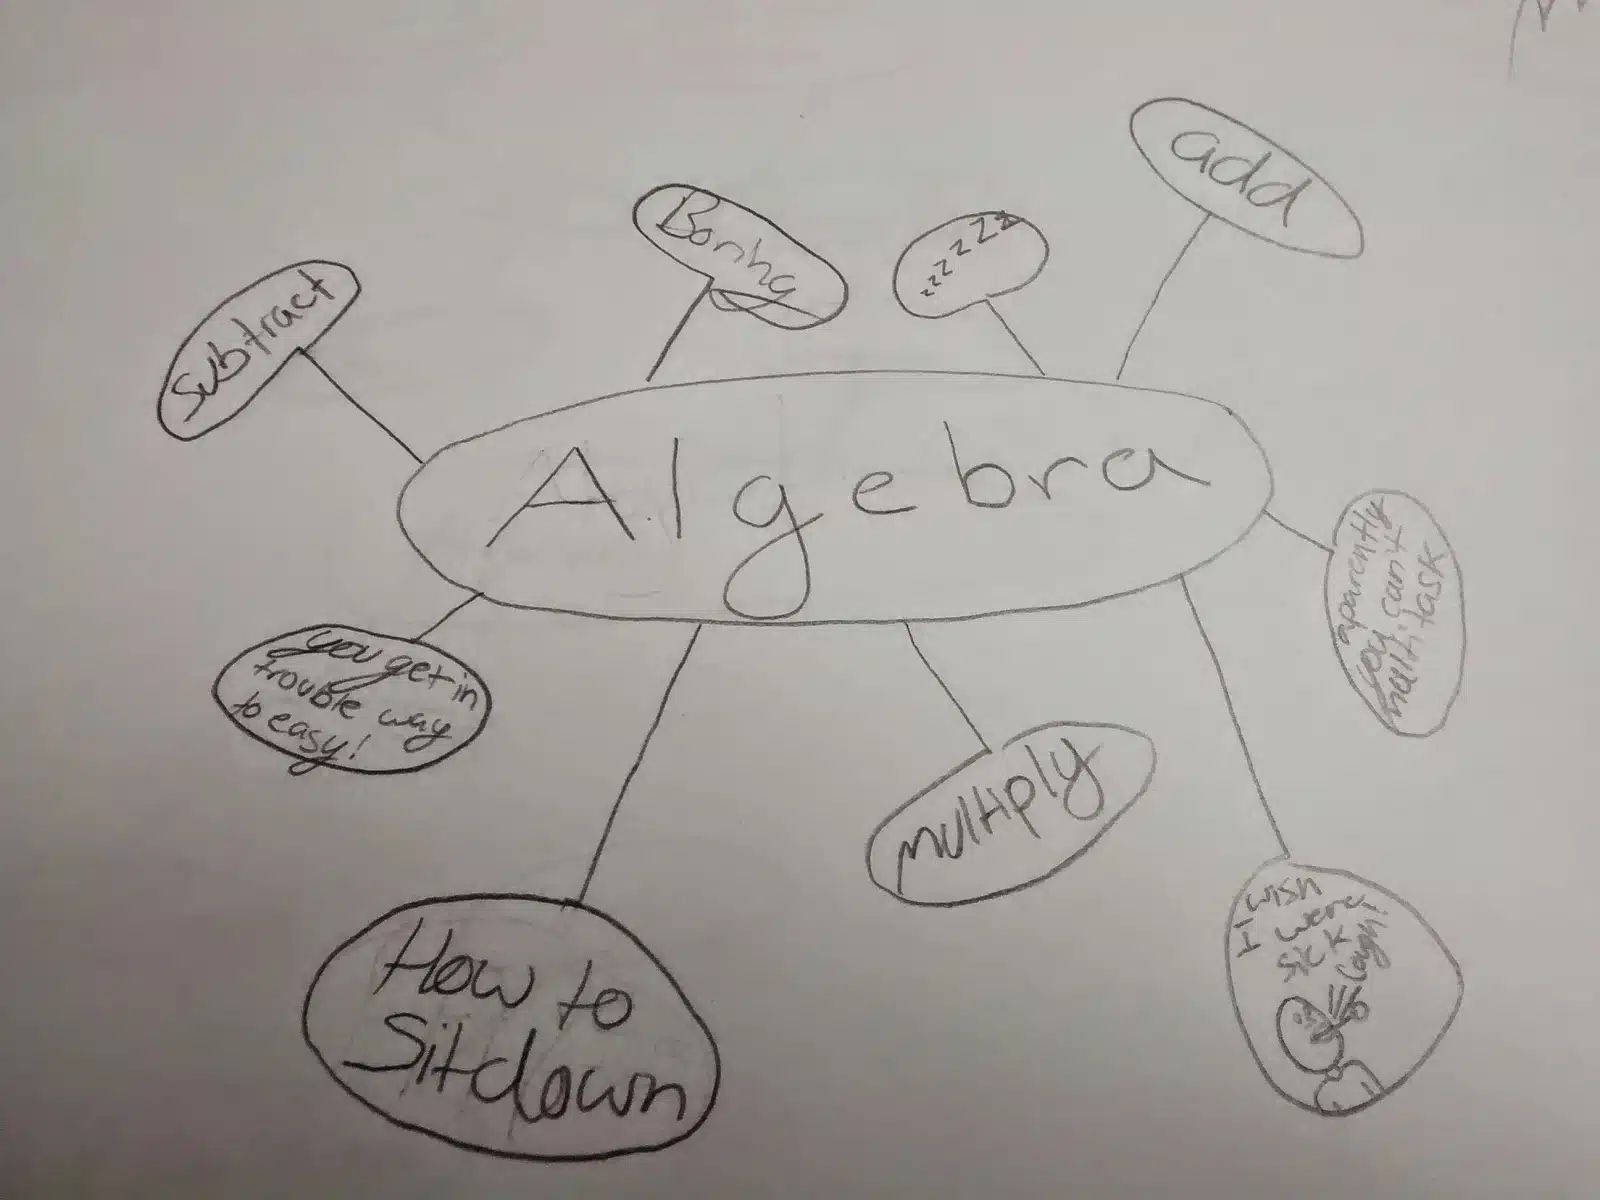 add
Boring
zzzzzzz
Subtract
Algebra
aparently
you can't
multi-task
you get in
trouble way
to easy!
multiply
I wish
I were
sick
Cough!
How to
Sitdown